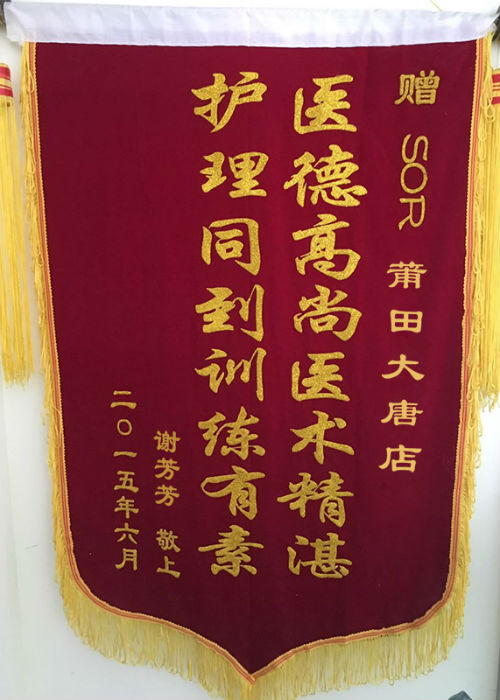 赠 SOR 莆田大唐店
医德高尚医术精湛
护理同到训练有素
谢芳芳 敬上
二〇一五年六月